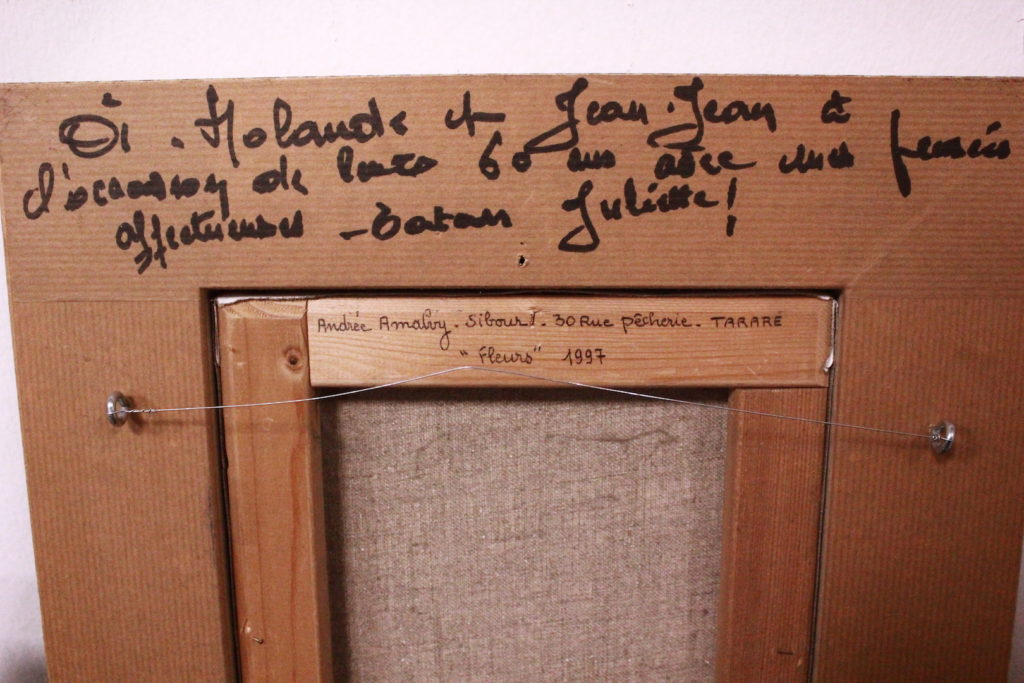 à . Yolande et Jean-Jean à
l'occasion de leurs 60 ans avec mes pensées
affectueuses - Juliette!
Andrée Amalvy. Sibourt. 30 Rue pêcherie. TARARE
"Fleurs" 1997